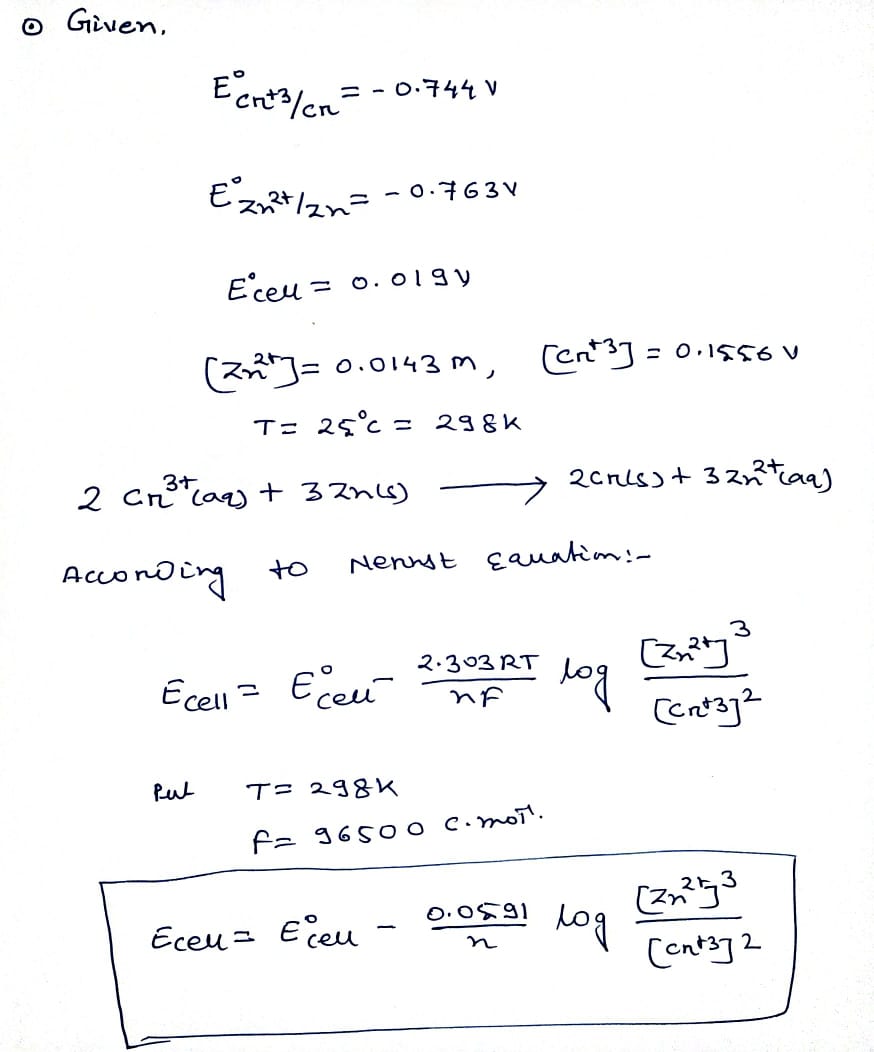 ⊙ Given,
E°Cr+3/Cr = - 0.744 V
E°Zn2+/Zn = - 0.763 V
E°cell = 0.019 V
[Zn2+] = 0.0143 m, [Cr+3] = 0.1556 V
T = 25°C = 298K
2 Cr3+(aq) + 3 Zn(s) ⟶ 2Cr(s) + 3 Zn2+(aq)
According to Nernst Equation:-
Ecell = E°cell - 2.303RT/nF log [Zn2+]3/[Cr+3]2
Put T = 298K
F = 96500 C.mol-1.
Ecell = E°cell - 0.0591/n log [Zn2+]3/[Cr+3]2